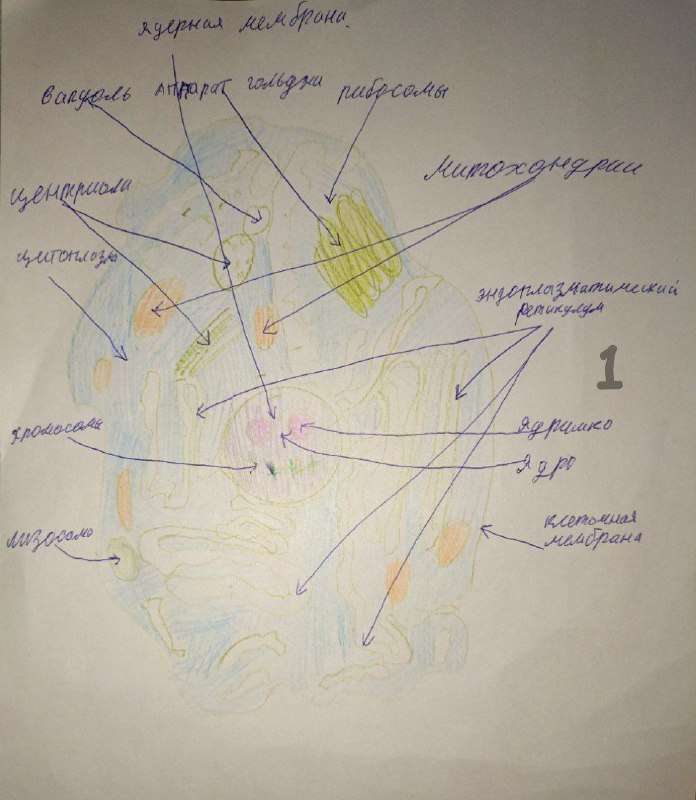 ядерная мембрана.
Вакуоль аппарат гольджи рибосомы
Митохондрии
центриоли
цитоплазма
эндоплазматический
ретикулум
1
хромосома
ядрышко
ядро
клеточная
мембрана
лизосома